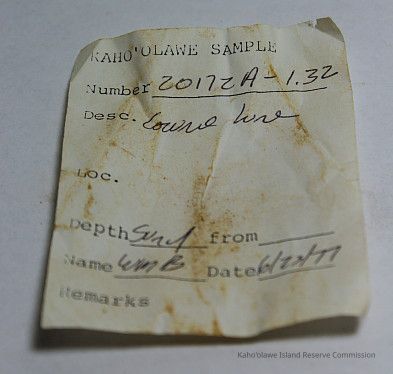 KAHO'OLAWE SAMPLE
Number 20172A-1.32
Desc.
Loc.
Depth Surf from
Name Date 6/22/77
Remarks
Kaho'olawe Island Reserve Commission